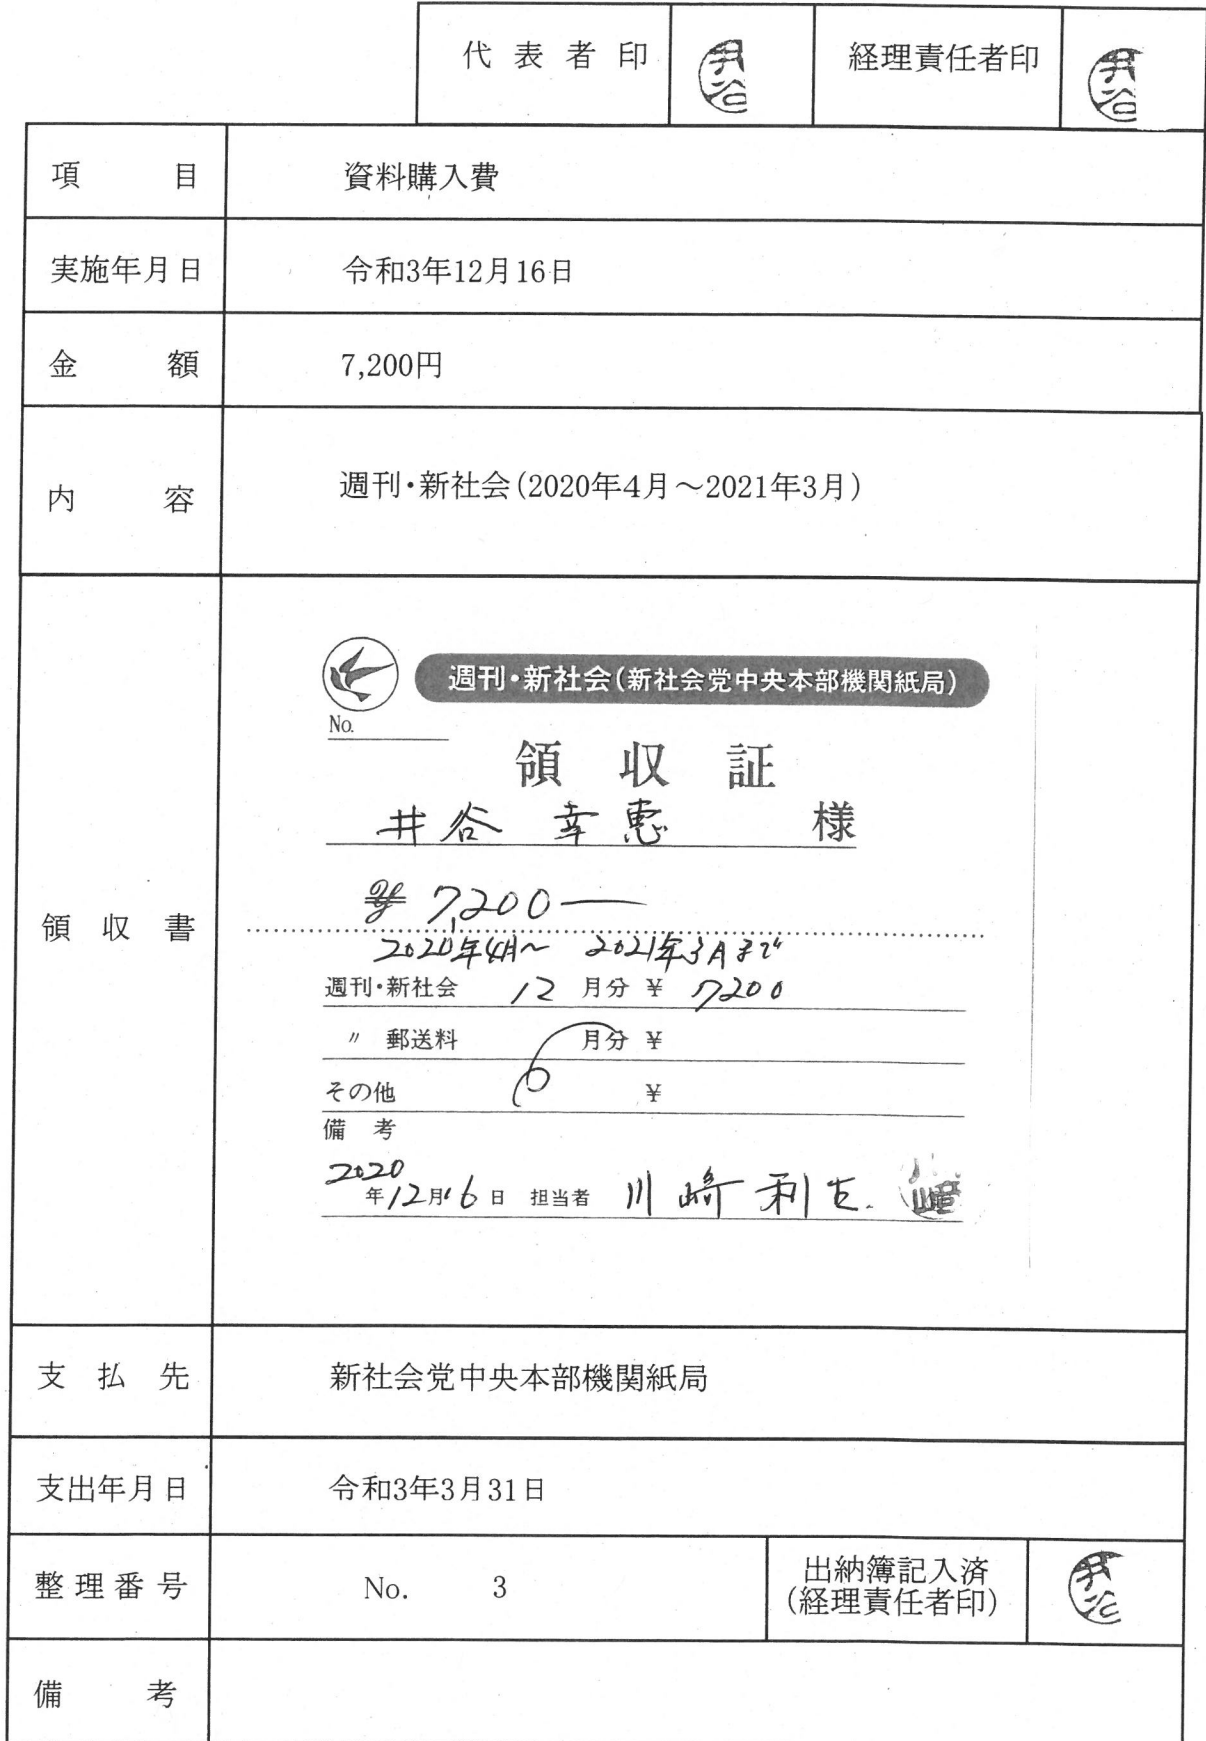 代表者印 井谷 経理責任者印 井谷
項目 資料購入費
実施年月日 令和3年12月16日
金額 7,200円
内容 週刊・新社会(2020年4月～2021年3月)
領収書
週刊・新社会(新社会党中央本部機関紙局)
No.
領収証
井谷 幸恵 様
¥ 7,200―
2020年4月～ 2021年3月まで
週刊・新社会 12 月分 ¥ 7200
〃 郵送料 月分 ¥
その他 ¥
備考
2020年12月16日 担当者 川崎 利
支払先 新社会党中央本部機関紙局
支出年月日 令和3年3月31日
整理番号 No. 3 出納簿記入済 井谷
(経理責任者印)
備考